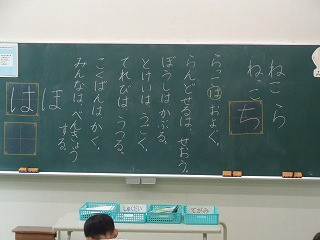 ねこら
ねこ
ち
らっこはおよぐ。
らんどせるは、せおう。
ぼうしはかぶる。
とけいは、うごく。
てれびは、うつる。
こくばんはかく。
みんなは、べんきょう
する。
ほ
は
しゅくだい
てがみ